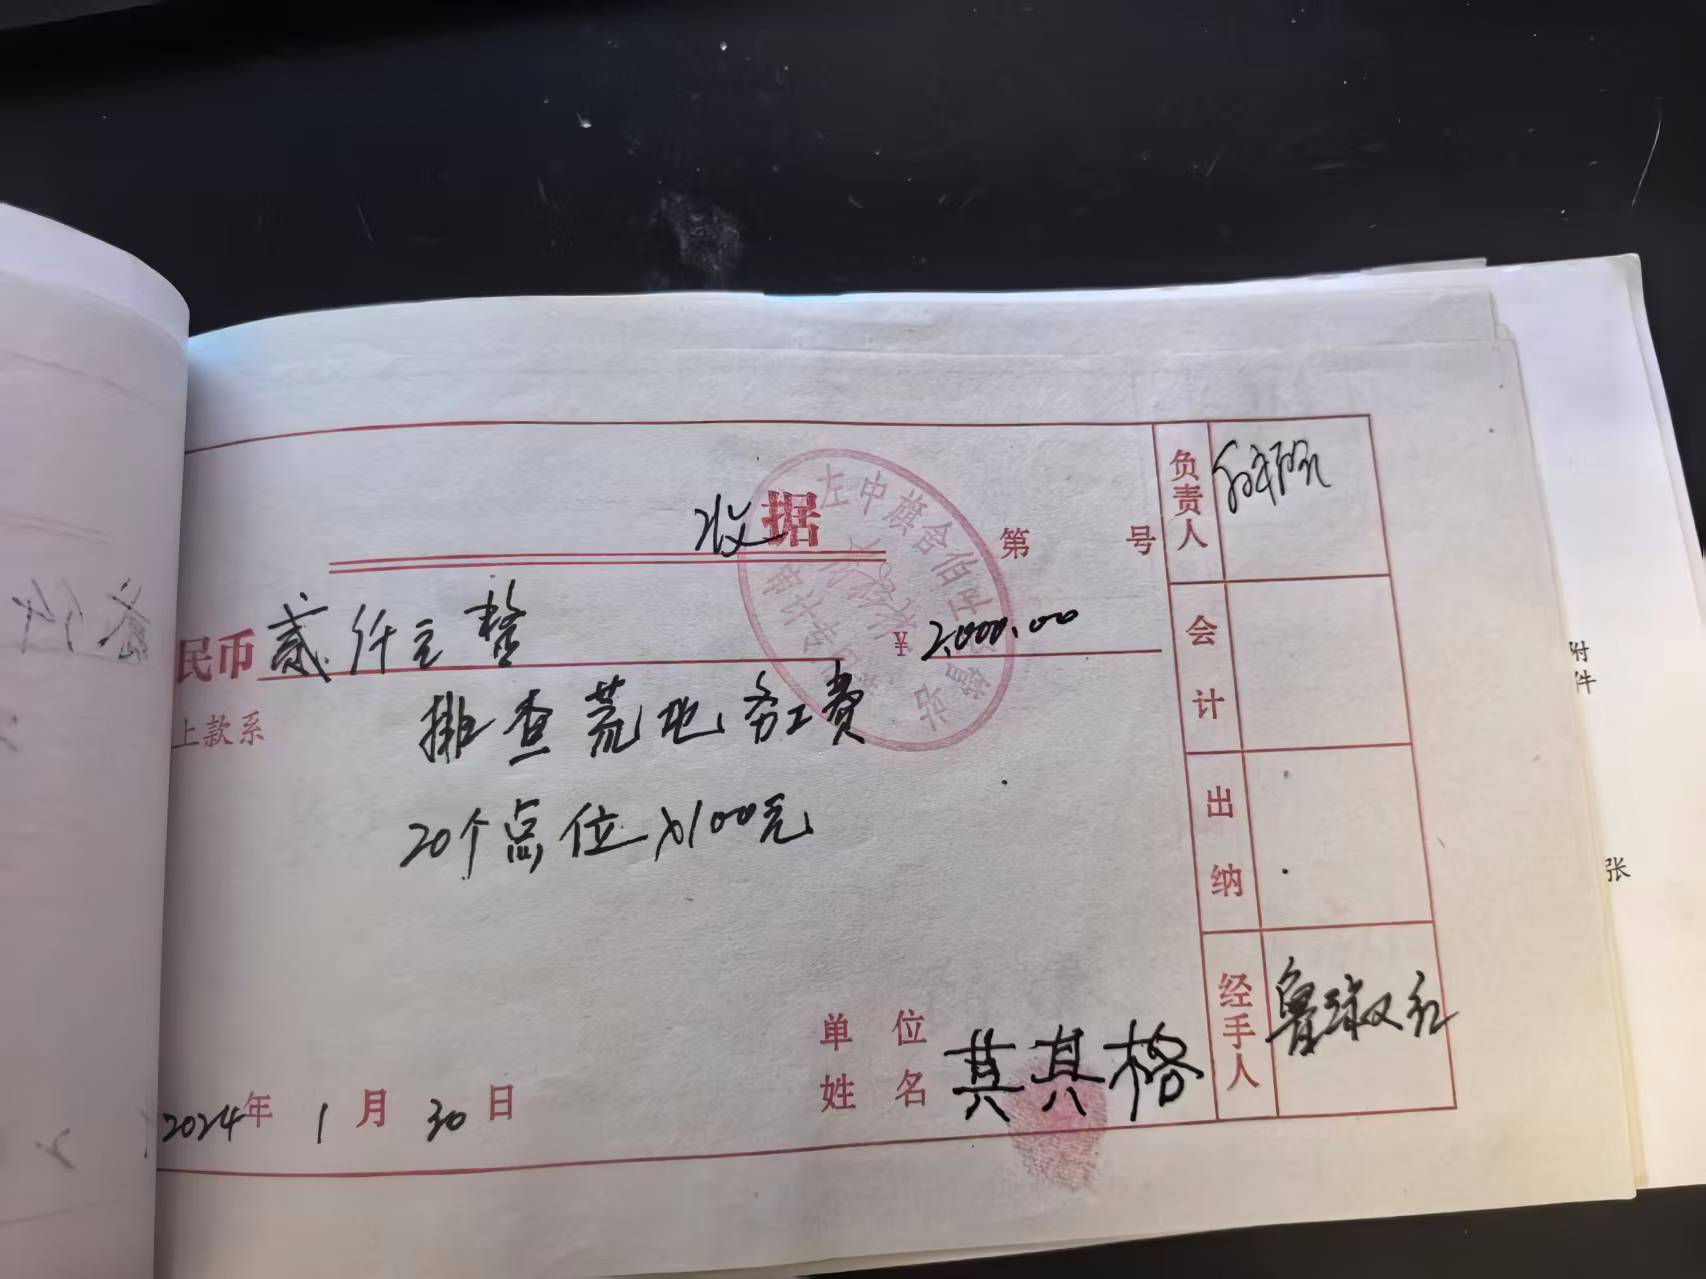 收据
第 号
民币 贰仟元整 ¥ 2,000.00
上款系 排查荒地务工费
20个点位×100元
2024年 1月 30日
单位
姓名 其其格
负责人
会计
出纳
经手人 鲁淑红
左中旗舍伯吐 管站
附件
张